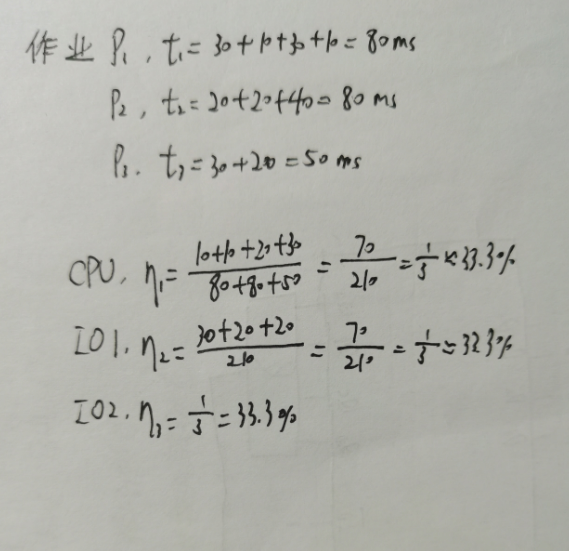 作业 P₁, t₁= 30+10+30+10= 80ms
P₂, t₂= 20+20+40= 80 ms
P₃. t₃= 30+20 = 50 ms
CPU, η₁= (10+10+20+30)/(80+80+50) = 70/210 = 1/3 ≈ 33.3%
IO1, η₂= (30+20+20)/210 = 70/210 = 1/3 ≈ 33.3%
IO2. η₃= 1/3 = 33.3%